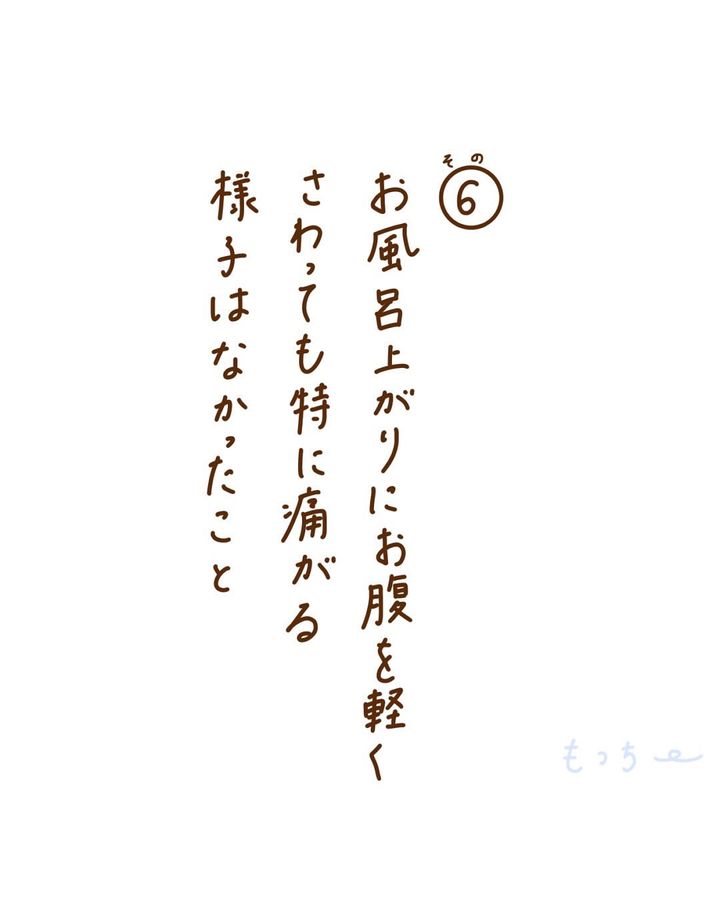 その
6
お風呂上がりにお腹を軽く
さわっても特に痛がる
様子はなかったこと
もっちー